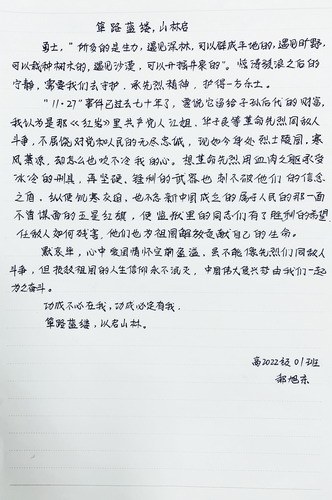 筚路蓝缕,山林启
勇士,"所负的是生力,遇见深林,可以辟成平地的,遇见旷野,
可以栽种树木的,遇见沙漠,可以开掘井泉的"。惊涛骇浪之后的
宁静,需要我们去守护,承先烈精神,护得一方乐土。
"11·27"事件已过去七十年了,要说它留给子孙后代的财富,
我认为是那《红岩》里共产党人江姐,华子良等革命先烈同敌人
斗争,不屈饶对党和人民的无尽忠诚,现如今身处烈士陵园,寒
风萧凉,却怎么也吹不冷我的心。想革命先烈用血肉之躯承受
冰冷的刑具,再坚硬、锋利的武器也刺不破他们的信念
之盾,纵使饥寒交困,也不忘新中国成立的属于人民的那一面
不曾谋面的五星红旗,使监狱里的同志们有了胜利的希望
任敌人如何残害,他们也为祖国解放贡献自己的生命。
默哀毕,心中爱国情怀空前盈溢,虽不能像先烈们同敌人
斗争,但报效祖国的人生信仰永不泯灭,中国伟大复兴梦由我们一起
为之奋斗。
功成不必在我,功成必定有我。
筚路蓝缕,以启山林。
高2022级01班
旭东